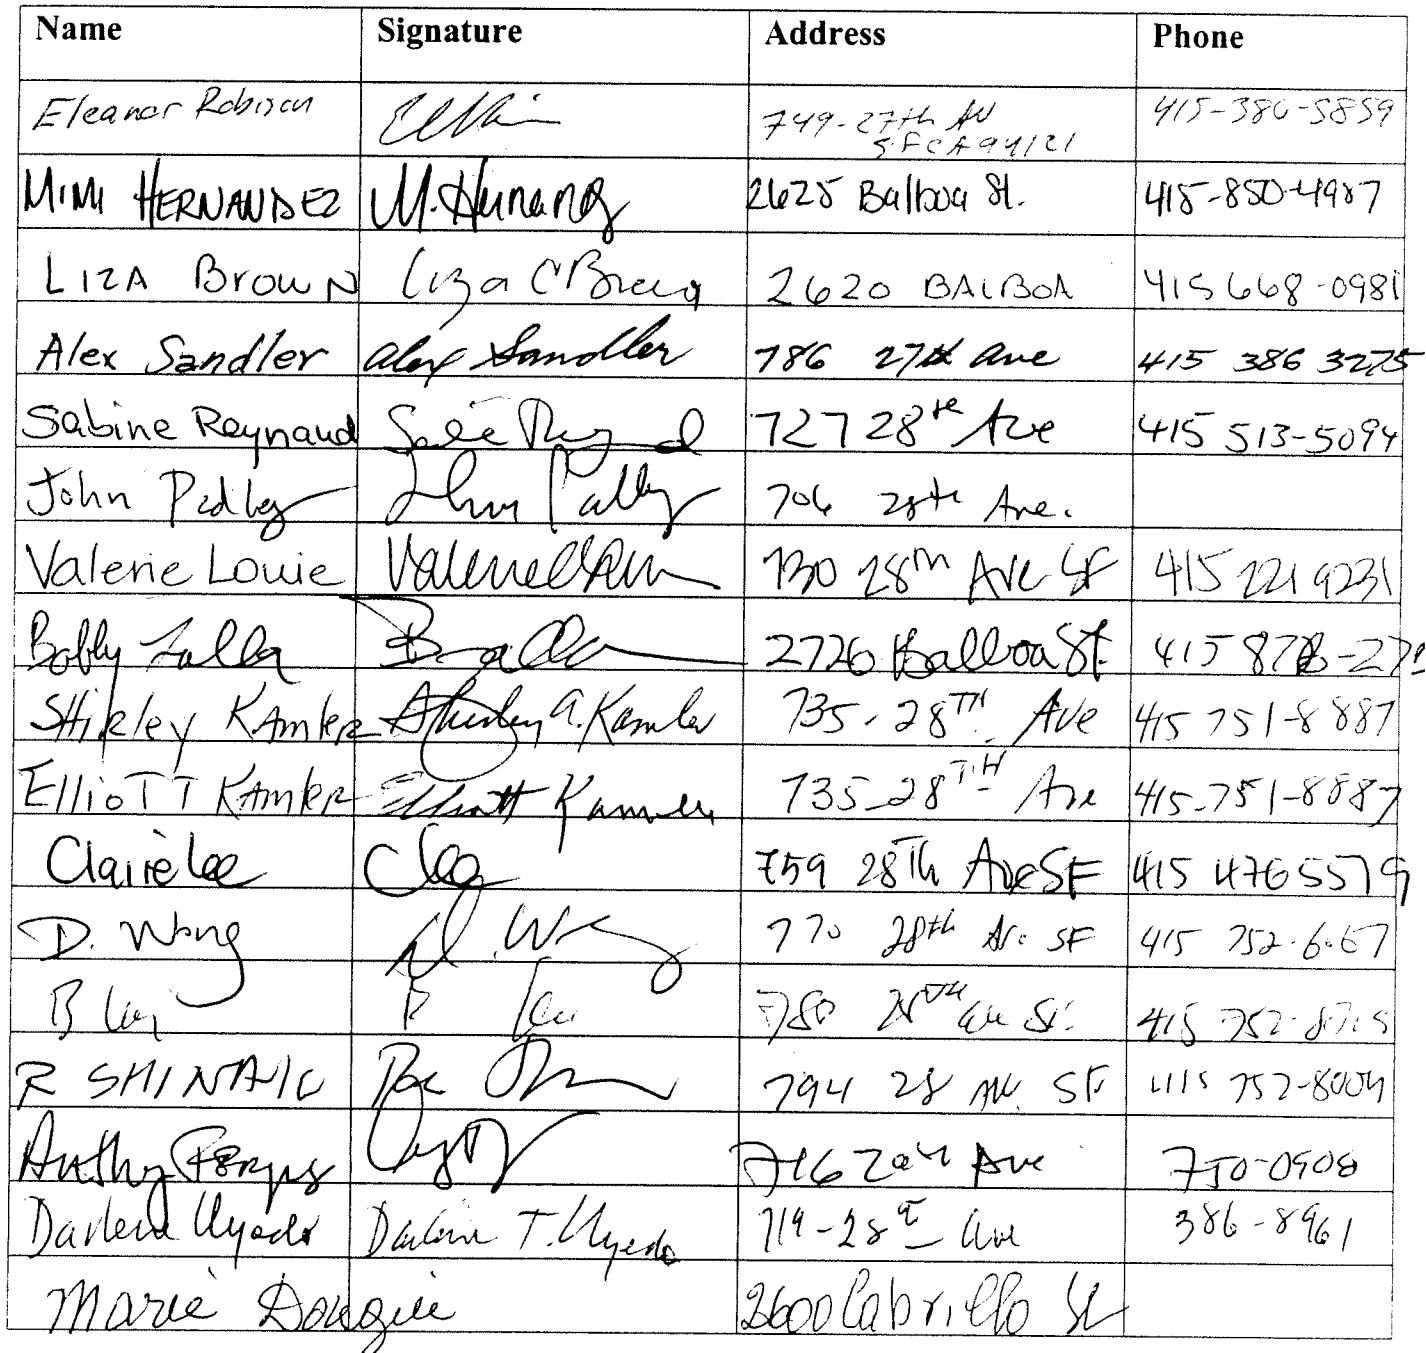 Name Signature Address Phone
Eleanor Robison 749-27th AV 415-386-5859
SF CA 94121
MIMI HERNANDEZ M. Hernandez 2625 Balboa St. 415-850-4987
LIZA BROWN Liza C Brown 2620 BALBOA 415 668-0981
Alex Sandler Alex Sandler 786 27th Ave 415 386 3275
Sabine Reynaud 727 28th Ave 415 513-5094
John 706 28th Ave.
Valerie Louie Valerie 730 28th Ave SF 415 221 9231
Bobby Lalla 2726 Balboa St.
SHIRley KAmleR Shirley A. Kamler 735-28TH Ave 415 751-8887
EllioTT KAmleR Elliott Kamler 735-28TH Ave 415-751-8887
Claire Lee CLee 759 28Th Ave SF 415 476 5579
D. Wong D. Wong 770 28th Av. SF 415
B 780 28TH Ave SF. 415
R 794 28 AV. SF 415 752-8004
716 Ave 750-0908
Darlene Uyeda Darlene T. Uyeda 719-28th Ave 386-8961
Marie 2600 Cabrillo St